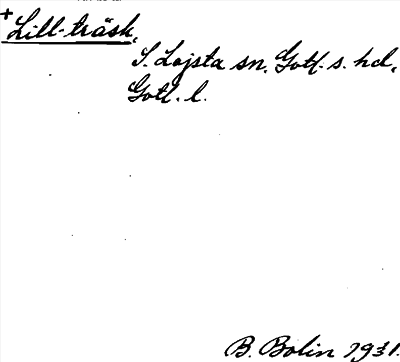 +Lill-träsk,
S. Lojsta sn. Gotl. s. hd.,
Gotl. l.
B. Bolin 1931.